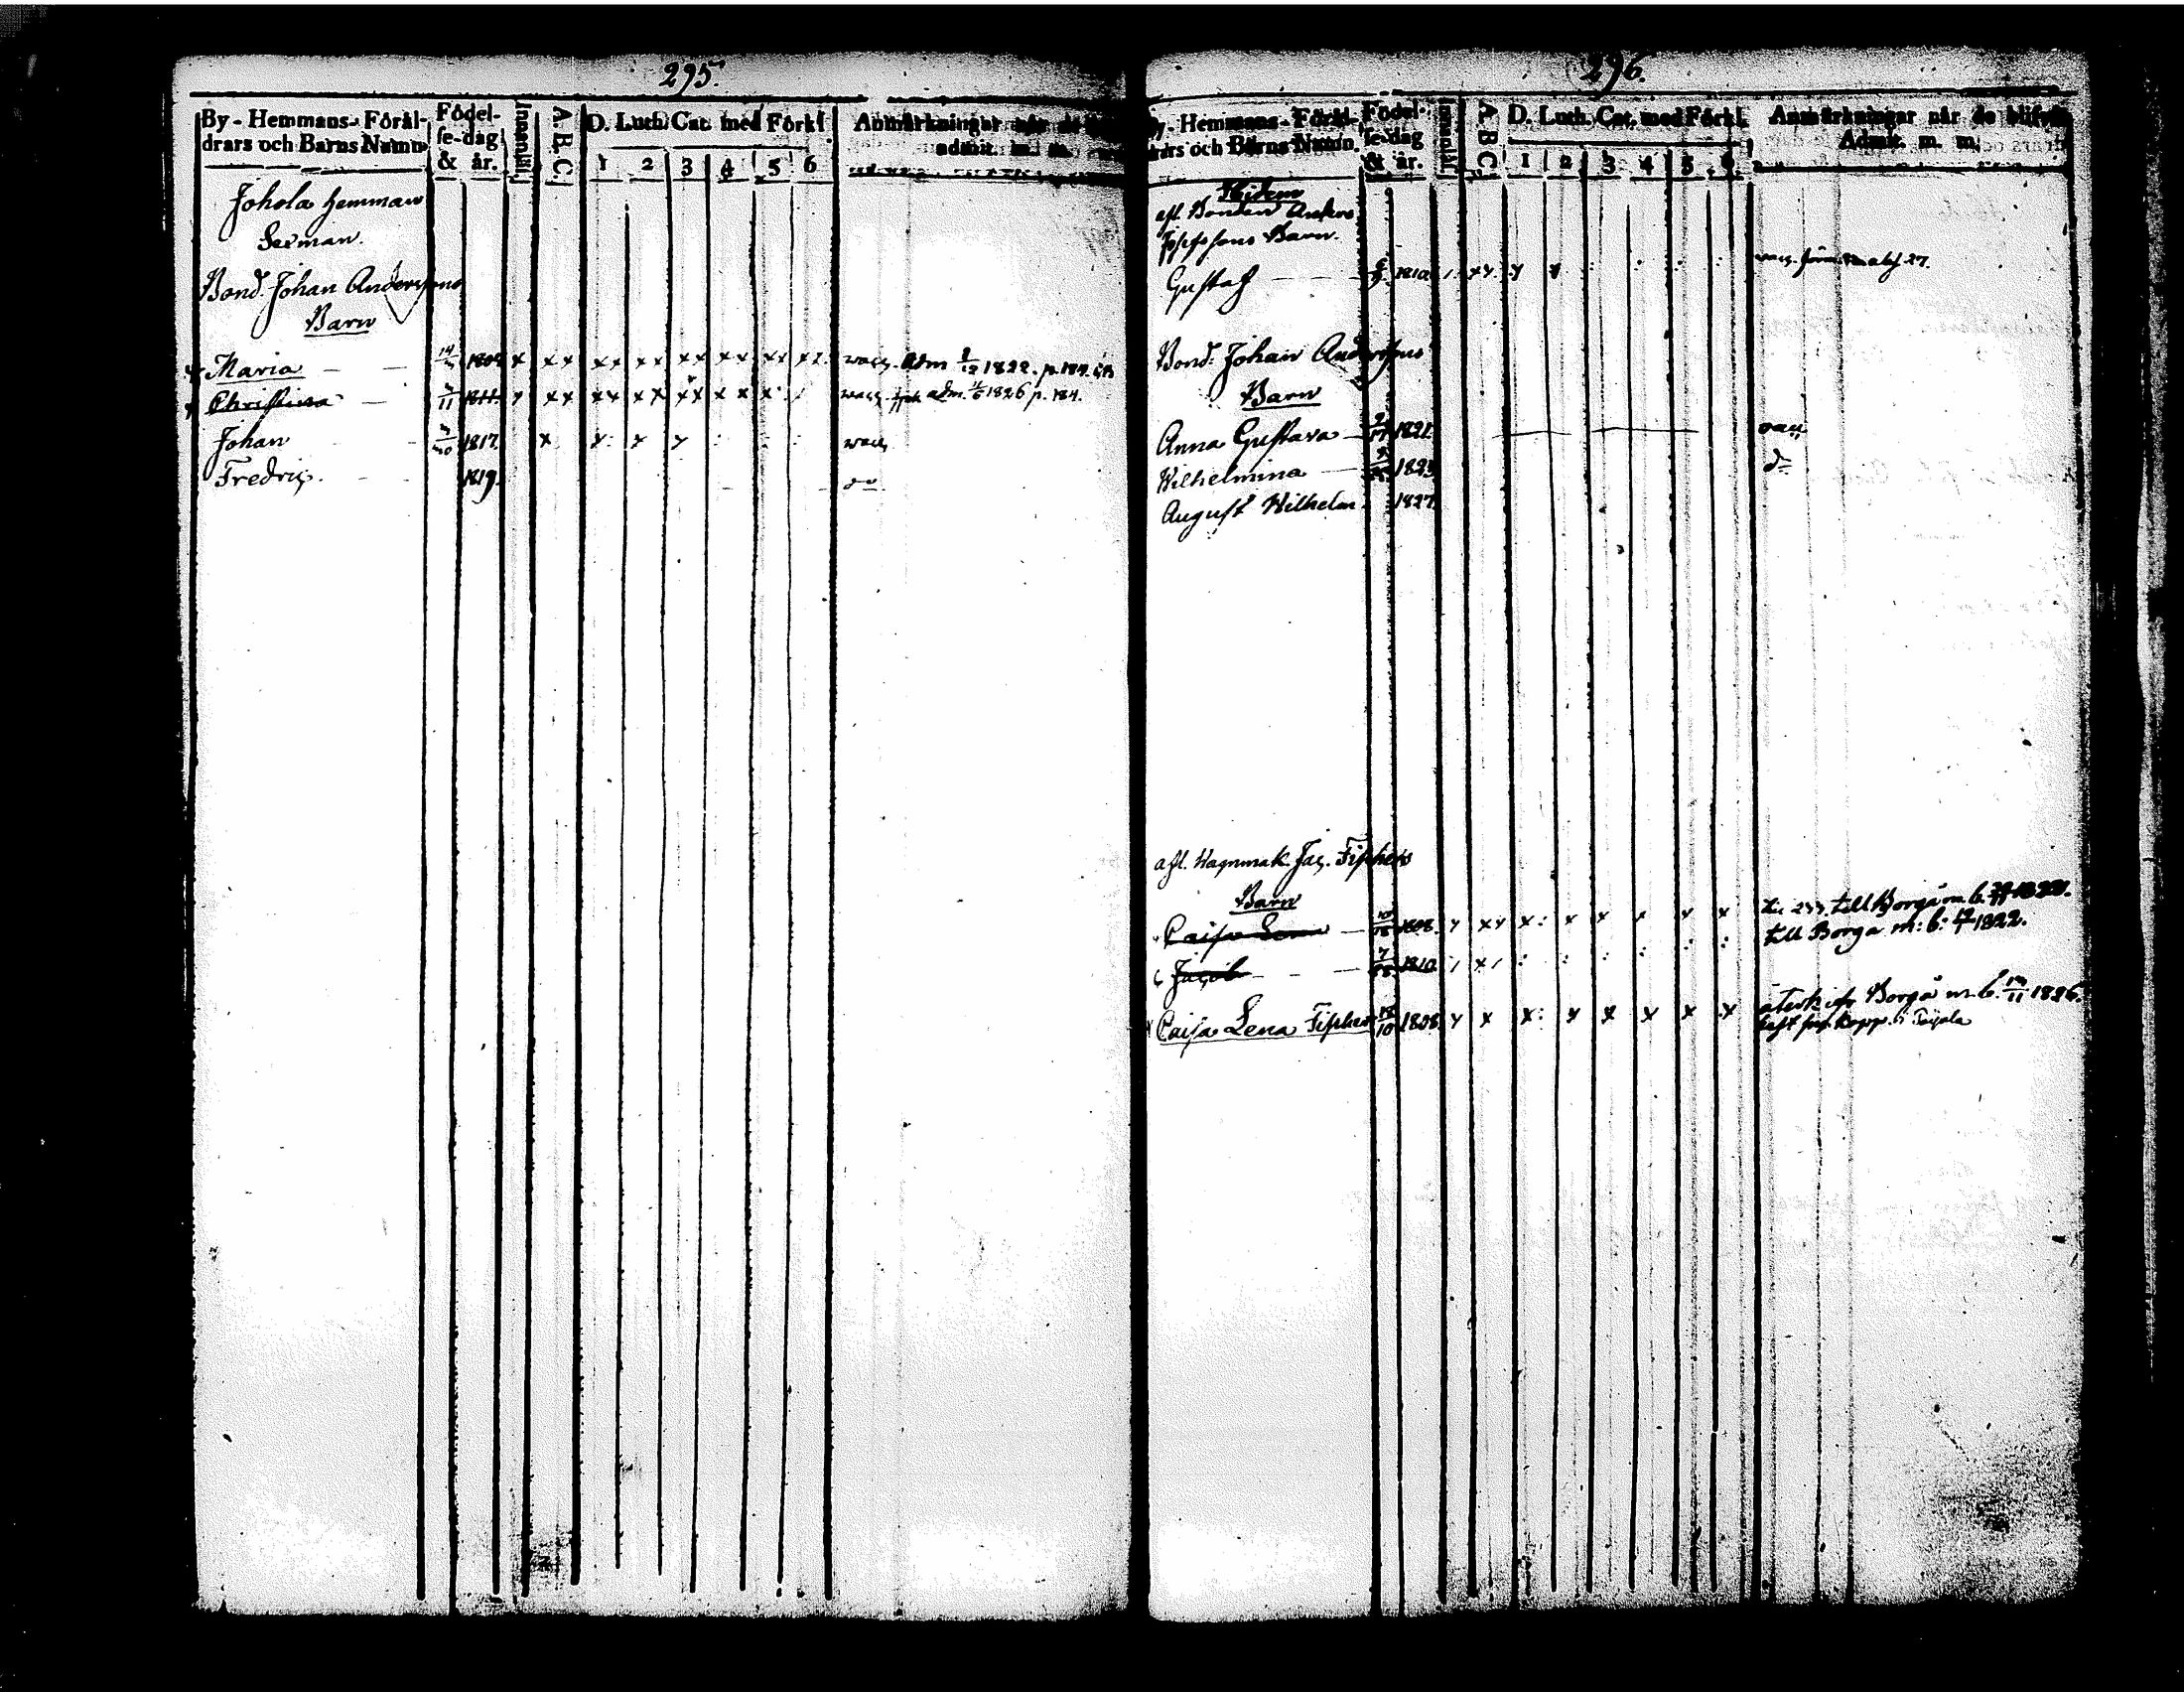 295.
By-Hemmans-Föräl-
drars och Barns Namn
Födel-
se-dag
& år.
Innanläs.
A. B. C.
D. Luth. Cat. med Förkl.
1 2 3 4 5 6
Anmärkningar när de
admit. m. m.
Johola hemman
Bond. Johan Anderssons
Barn
x Maria 14 x xx xx xx xx xx xx xx vacc. adm 1822. p. 184.
x Christina 3/11 1811. x xx xx xx xx x x x vacc. adm. 1826 p. 184.
Johan 1817. x x x x vacc
Fredric. 1819.
296.
By-Hemmans-Föräl-
drars och Barns Namn.
Födel-
se-dag
& år.
Innanläs.
A. B. C.
D. Luth. Cat. med Förkl.
1 2 3 4 5 6
Anmärkningar när de blifvit
Admit. m. m.
afl. Bonden Anders
Josefssons Barn.
Gustaf 1810 xx x x vacc. 27.
Bond: Johan Anderssons
Barn
Anna Gustava 1821. vacc
Wilhelmina 1823 do
August Wilhelm 1827
afl. Wagnmak. Jac. Fischers
Barn
Caisa Lena 1808. x xx x x x x x x till Borgå m. b.
Jacob 1810 till Borgå m: b: 1822.
Caisa Lena Fischer 12/10 1808 x x x x x x x x Borgå m. b. 13/11 1826.